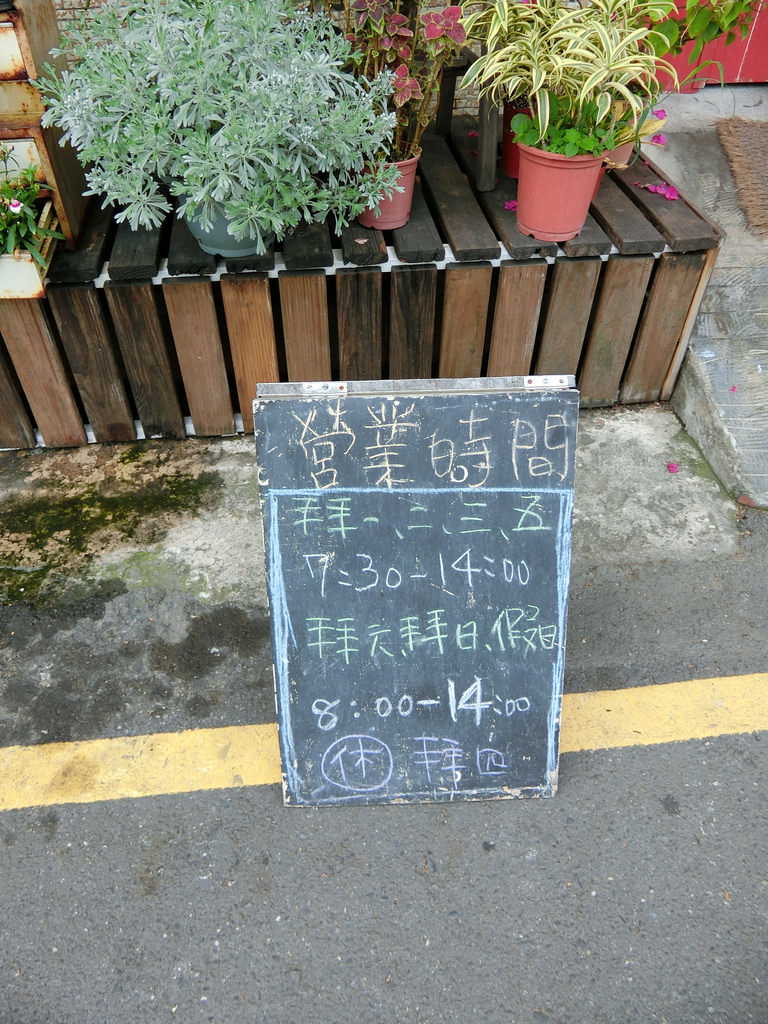 營業時間
拜一、二、三、五
7:30-14:00
拜六、拜日、假日
8:00-14:00
休 拜四